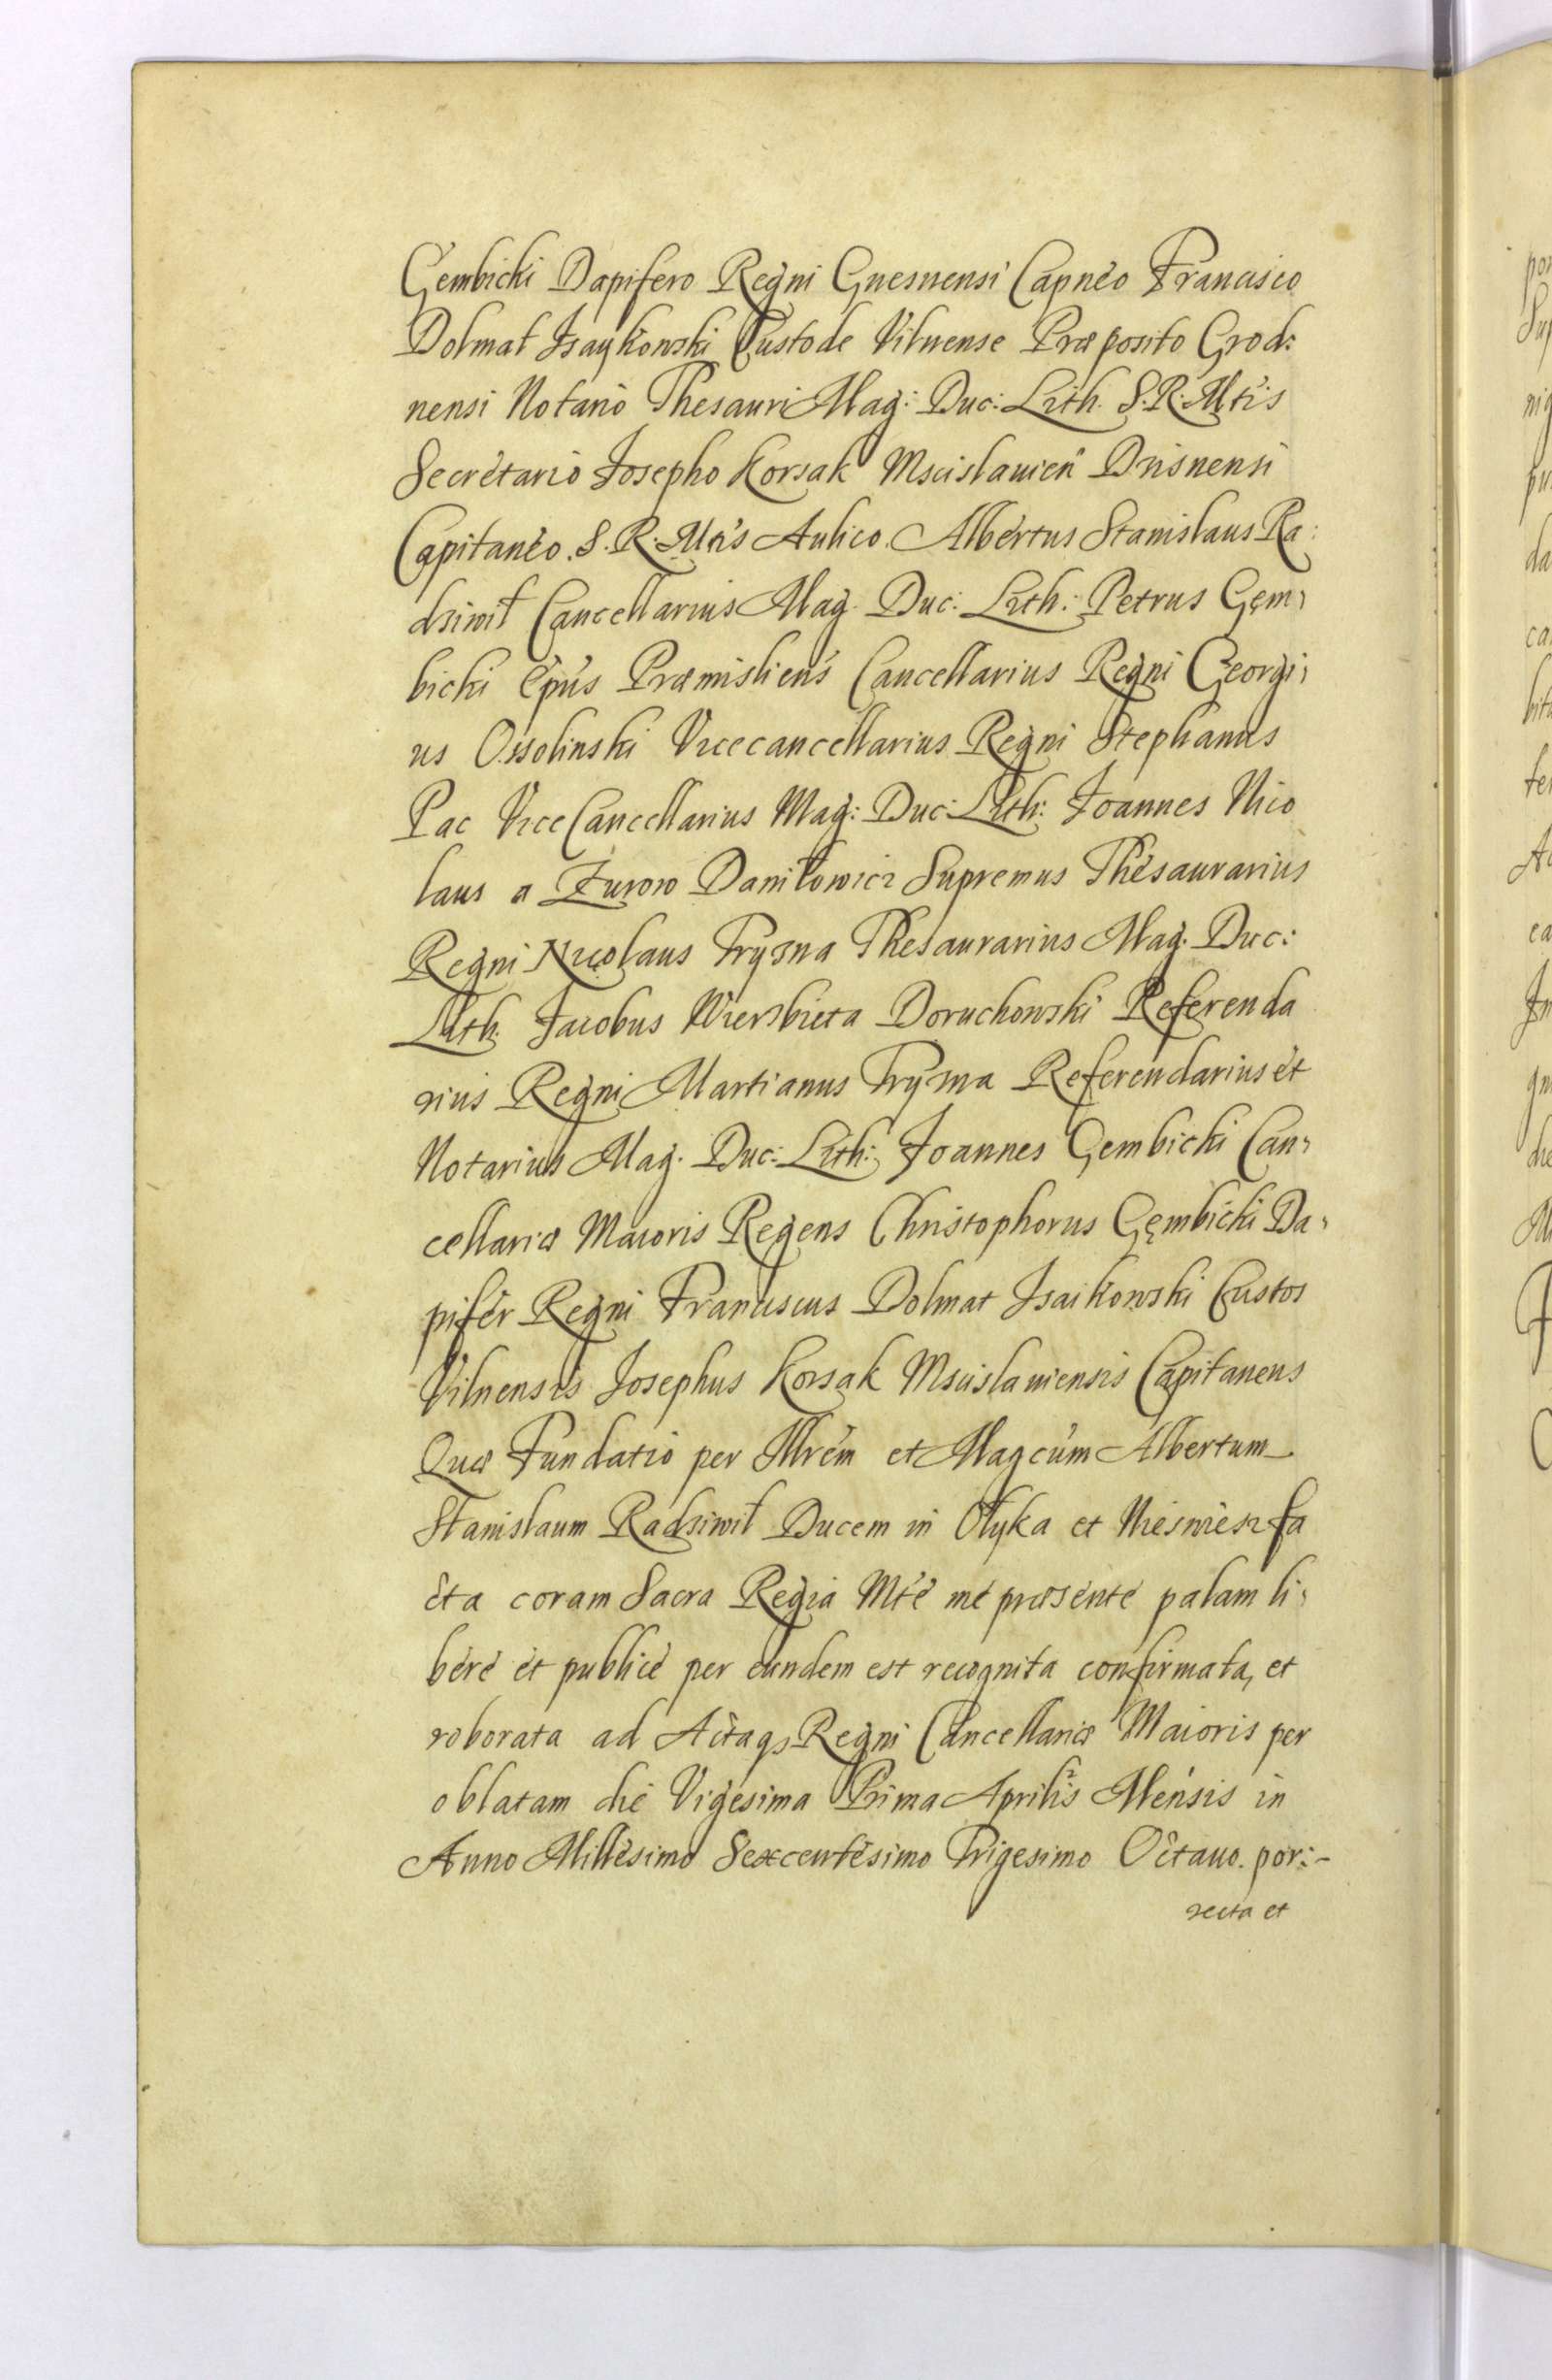 Gembicki Dapifero Regni Gnesnensi Capnéo Francisco
Dolmat Isaykowski Custode Vilnense Præposito Grod:
nensi Notario Thesauri Mag: Duc: Lith. S. R. Mtis
Secretario Josepho Korsak Mscislauien Drisnensi
Capitaneo. S. R. Mtis Aulico. Albertus Stanislaus Ra:
dziwił Cancellarius Mag. Duc: Lith: Petrus Gęm,
bicki Epus Præmisliens Cancellarius Regni Georgi,
us Ossolinski Vicecancellarius Regni Stephanus
Pac ViceCancellarius Mag: Duc: Lith: Joannes Nico
laus a Żurow Daniłowicz Supremus Thesaurarius
Regni Nicolaus Tryzna Thesaurarius Mag. Duc:
Lith. Jacobus Wierzbieta Doruchowski Referenda
rius Regni Martianus Tryzna Referendarius et
Notarius Mag. Duc: Lith: Joannes Gembicki Can,
cellariæ Maioris Regens Christophorus Gęmbicki Da,
pifer Regni Franciscus Dolmat Isaikowski Custos
Vilnensis Josephus Korsak Mscislauiensis Capitaneus
Quæ Fundatio per Illrem et Magcum Albertum
Stanislaum Radziwił Ducem in Ołyka et Nieswiesz fa
cta coram Sacra Regia Mte me præsente palam li,
bere et publice per eundem est recognita confirmata, et
roborata ad Actaqs Regni Cancellariæ Maioris per
oblatam die Vigesima Prima Aprilis Mensis in
Anno Millesimo Sexcentesimo Trigesimo Octauo. por:-
recta et